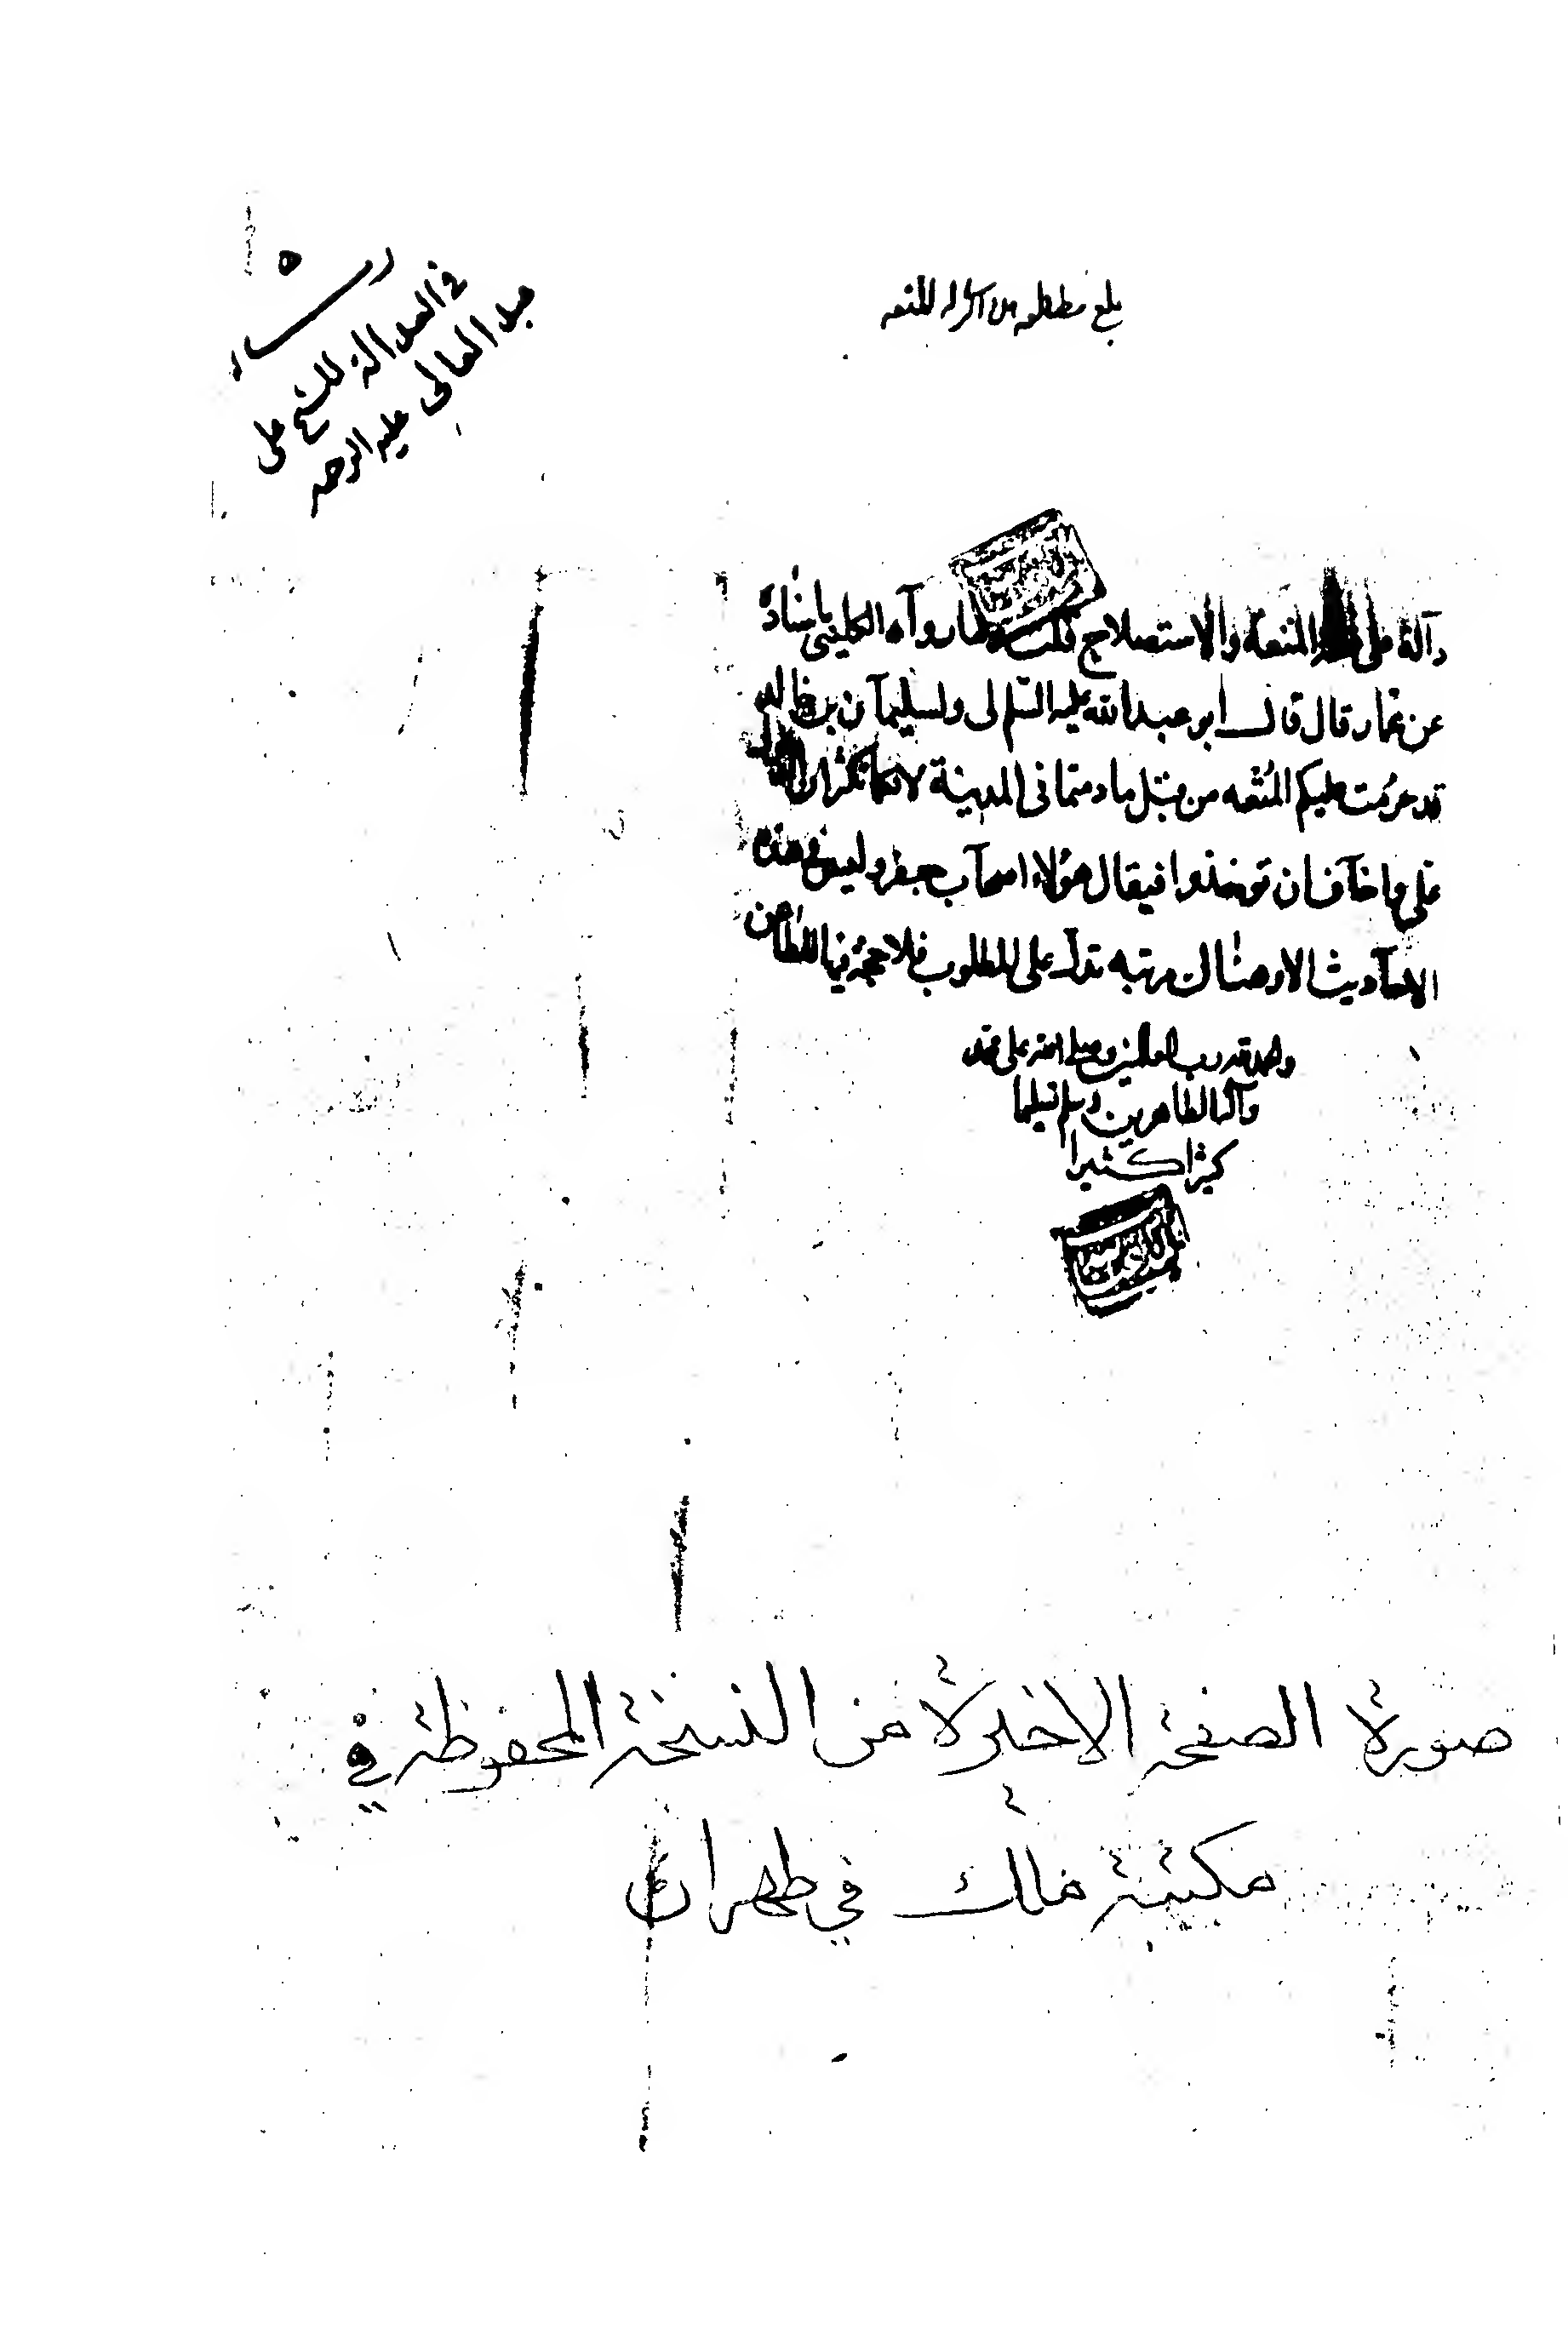 رسالة
في العدالة للشيخ علي
عبد العالي عليه الرحمه
بلغ من للمتعه
دالة على المتعة والاستصلاح ما رواه الكليني باسناده
عن عمار قال قال ابو عبد الله عليه السلم لي ولسليمان بن خالد
قد حرمت عليكم المتعه من قبل ما دمتما في المدينة لانكما تكثران الدخول
علي واخاف ان توخذوا فيقال هؤلاء اصحاب جعفر وليس في هذه
الاحاديث تدل على المطلوب فلا حجة فيها للطاعن
والحمد لله رب العالمين وصلى الله على محمد
وآله الطاهرين وسلم تسليما
كثيرا كثيرا
صورة الصفحة الاخيرة من النسخة المحفوظة في
مكتبة ملك في طهران